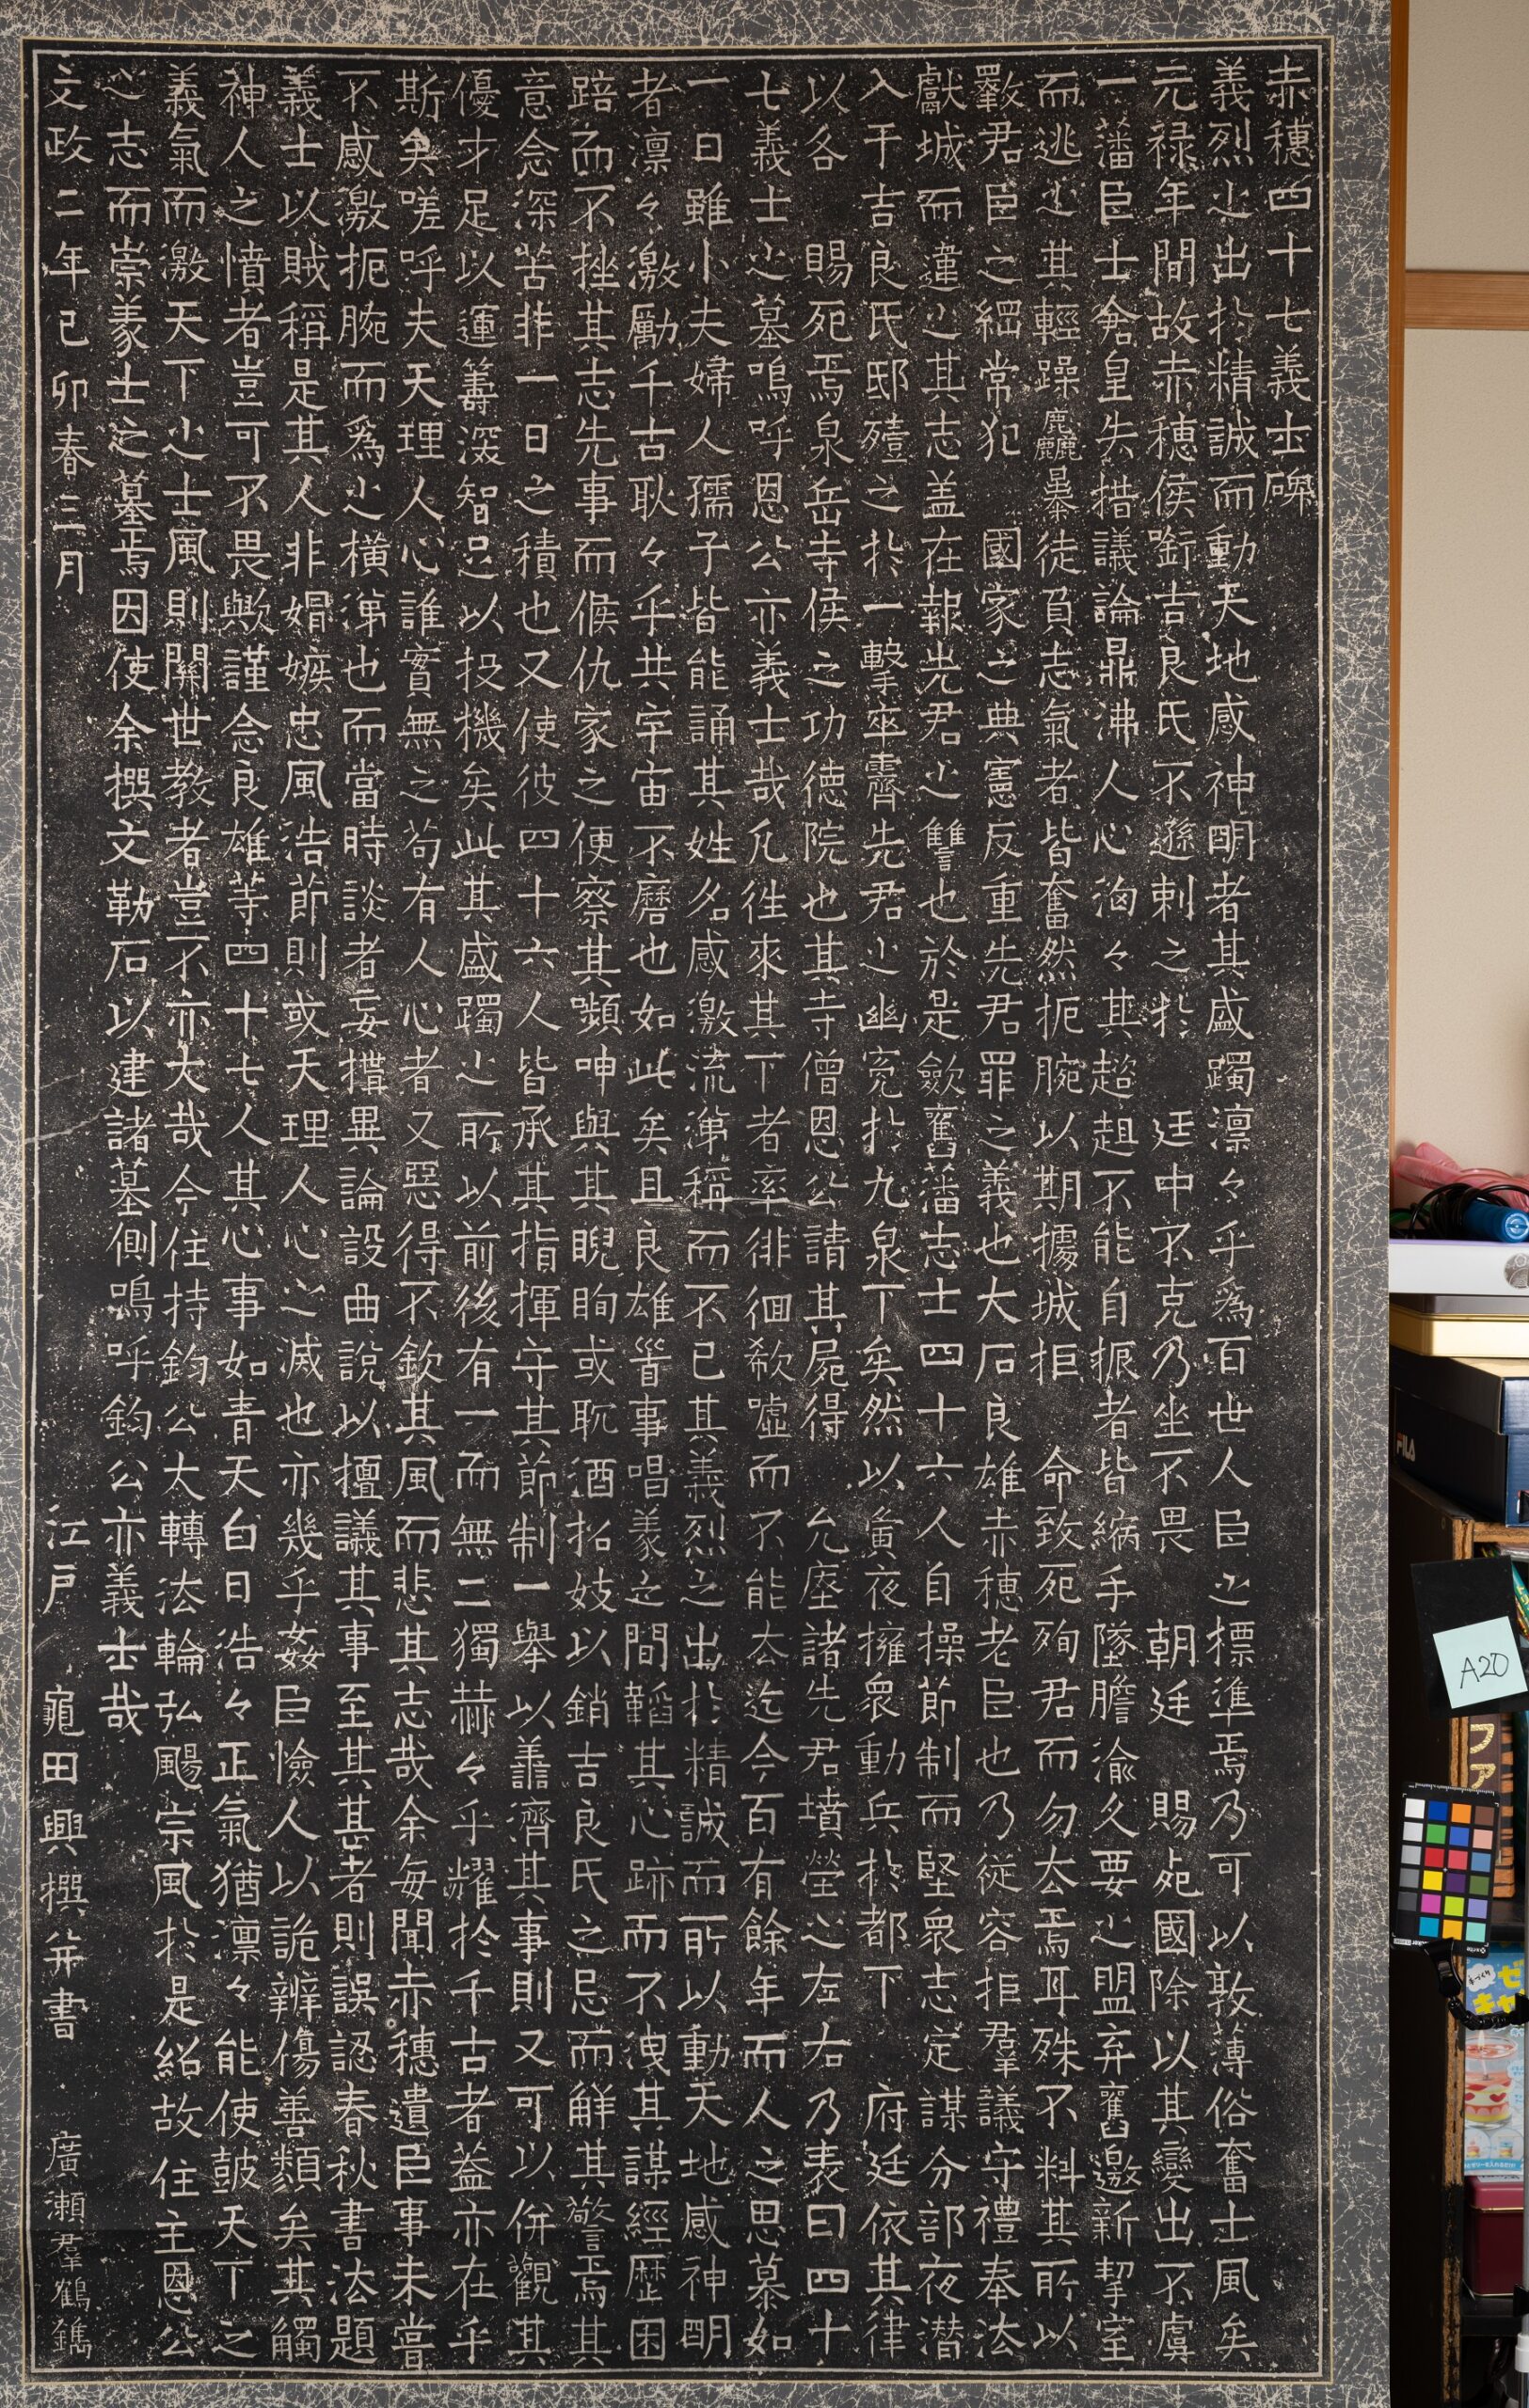 赤穗四十七義士碑
義烈之出於精誠而動天地感神明者其盛躅凛々乎為百世人臣之標準焉乃可以敦薄俗奮士風矣
元禄年間故赤穗侯銜吉良氏不遜刺之於　廷中不克乃坐不畏　朝廷　賜死國除以其變出不虞
一藩臣士倉皇失措議論鼎沸人心洶々其趦趄不能自振者皆縮手墜膽渝久要之盟弃舊邀新挈室
而逃之其輕躁麤暴徒負志氣者皆奮然扼腕以期據城拒　命致死殉君而勿去焉耳殊不料其所以
斁君臣之綱常犯　國家之典憲反重先君罪之義也大石良雄赤穗老臣也乃從容拒羣議守禮奉法
獻城而違之其志盖在報先君之讐也於是歛舊藩志士四十六人自操節制而堅衆志定謀分部夜潜
入于吉良氏邸殪之於一擊卒霽先君之幽寃於九泉下矣然以黃夜擁衆動兵於都下　府廷依其律
以各　賜死焉泉岳寺侯之功徳院也其寺僧恩公請其屍得　允座諸先君墳塋之左右乃表曰四十
七義士之墓嗚呼恩公亦義士哉凡徃來其下者率徘徊欷噓而不能去迄今百有餘年而人之思慕如
一日雖小夫婦人孺子皆能誦其姓名感激流涕稱而不已其義烈之出於精誠而所以動天地感神明
者凛々激勵千古耿々乎共宇宙不磨也如此矣且良雄首事唱義之間韜其心跡而不洩其謀經歷困
踣而不挫其志先事而候仇家之便察其嚬呻與其睨眴或耽酒拓妓以銷吉良氏之忌而鮮其警焉其
意念深苦非一日之積也又使彼四十六人皆承其指揮守其節制一擧以善濟其事則又可以併觀其
優才足以運籌深智足以投機矣此其盛躅之所以前後有一而無二獨赫々乎耀於千古者蓋亦在乎
斯矣嗟呼夫天理人心誰實無之苟有人心者又惡得不欽其風而悲其志哉余每聞赤穗遺臣事未嘗
不感激扼腕而爲之横涕也而當時談者妄揖異論設曲說以擅議其事至其甚者則誤認春秋書法題
義士以賊稱是其人非娟嫉忠風浩節則或天理人心之滅也亦幾乎姦臣憸人以詭辨傷善類矣其觸
神人之憤者豈可不畏歟謹念良雄等四十七人其心事如青天白日浩々正氣猶凛々能使皷天下之
義氣而激天下之士風則關世教者豈不亦大哉今住持鈞公太轉法輪弘颺宗風於是紹故住主恩公
之志而崇義士之墓焉因使余撰文勒石以建諸墓側嗚呼鈞公亦義士哉
文政二年己卯春三月　江戸　龜田興撰并書　廣瀬羣鶴鐫
A20
FILA
ファ